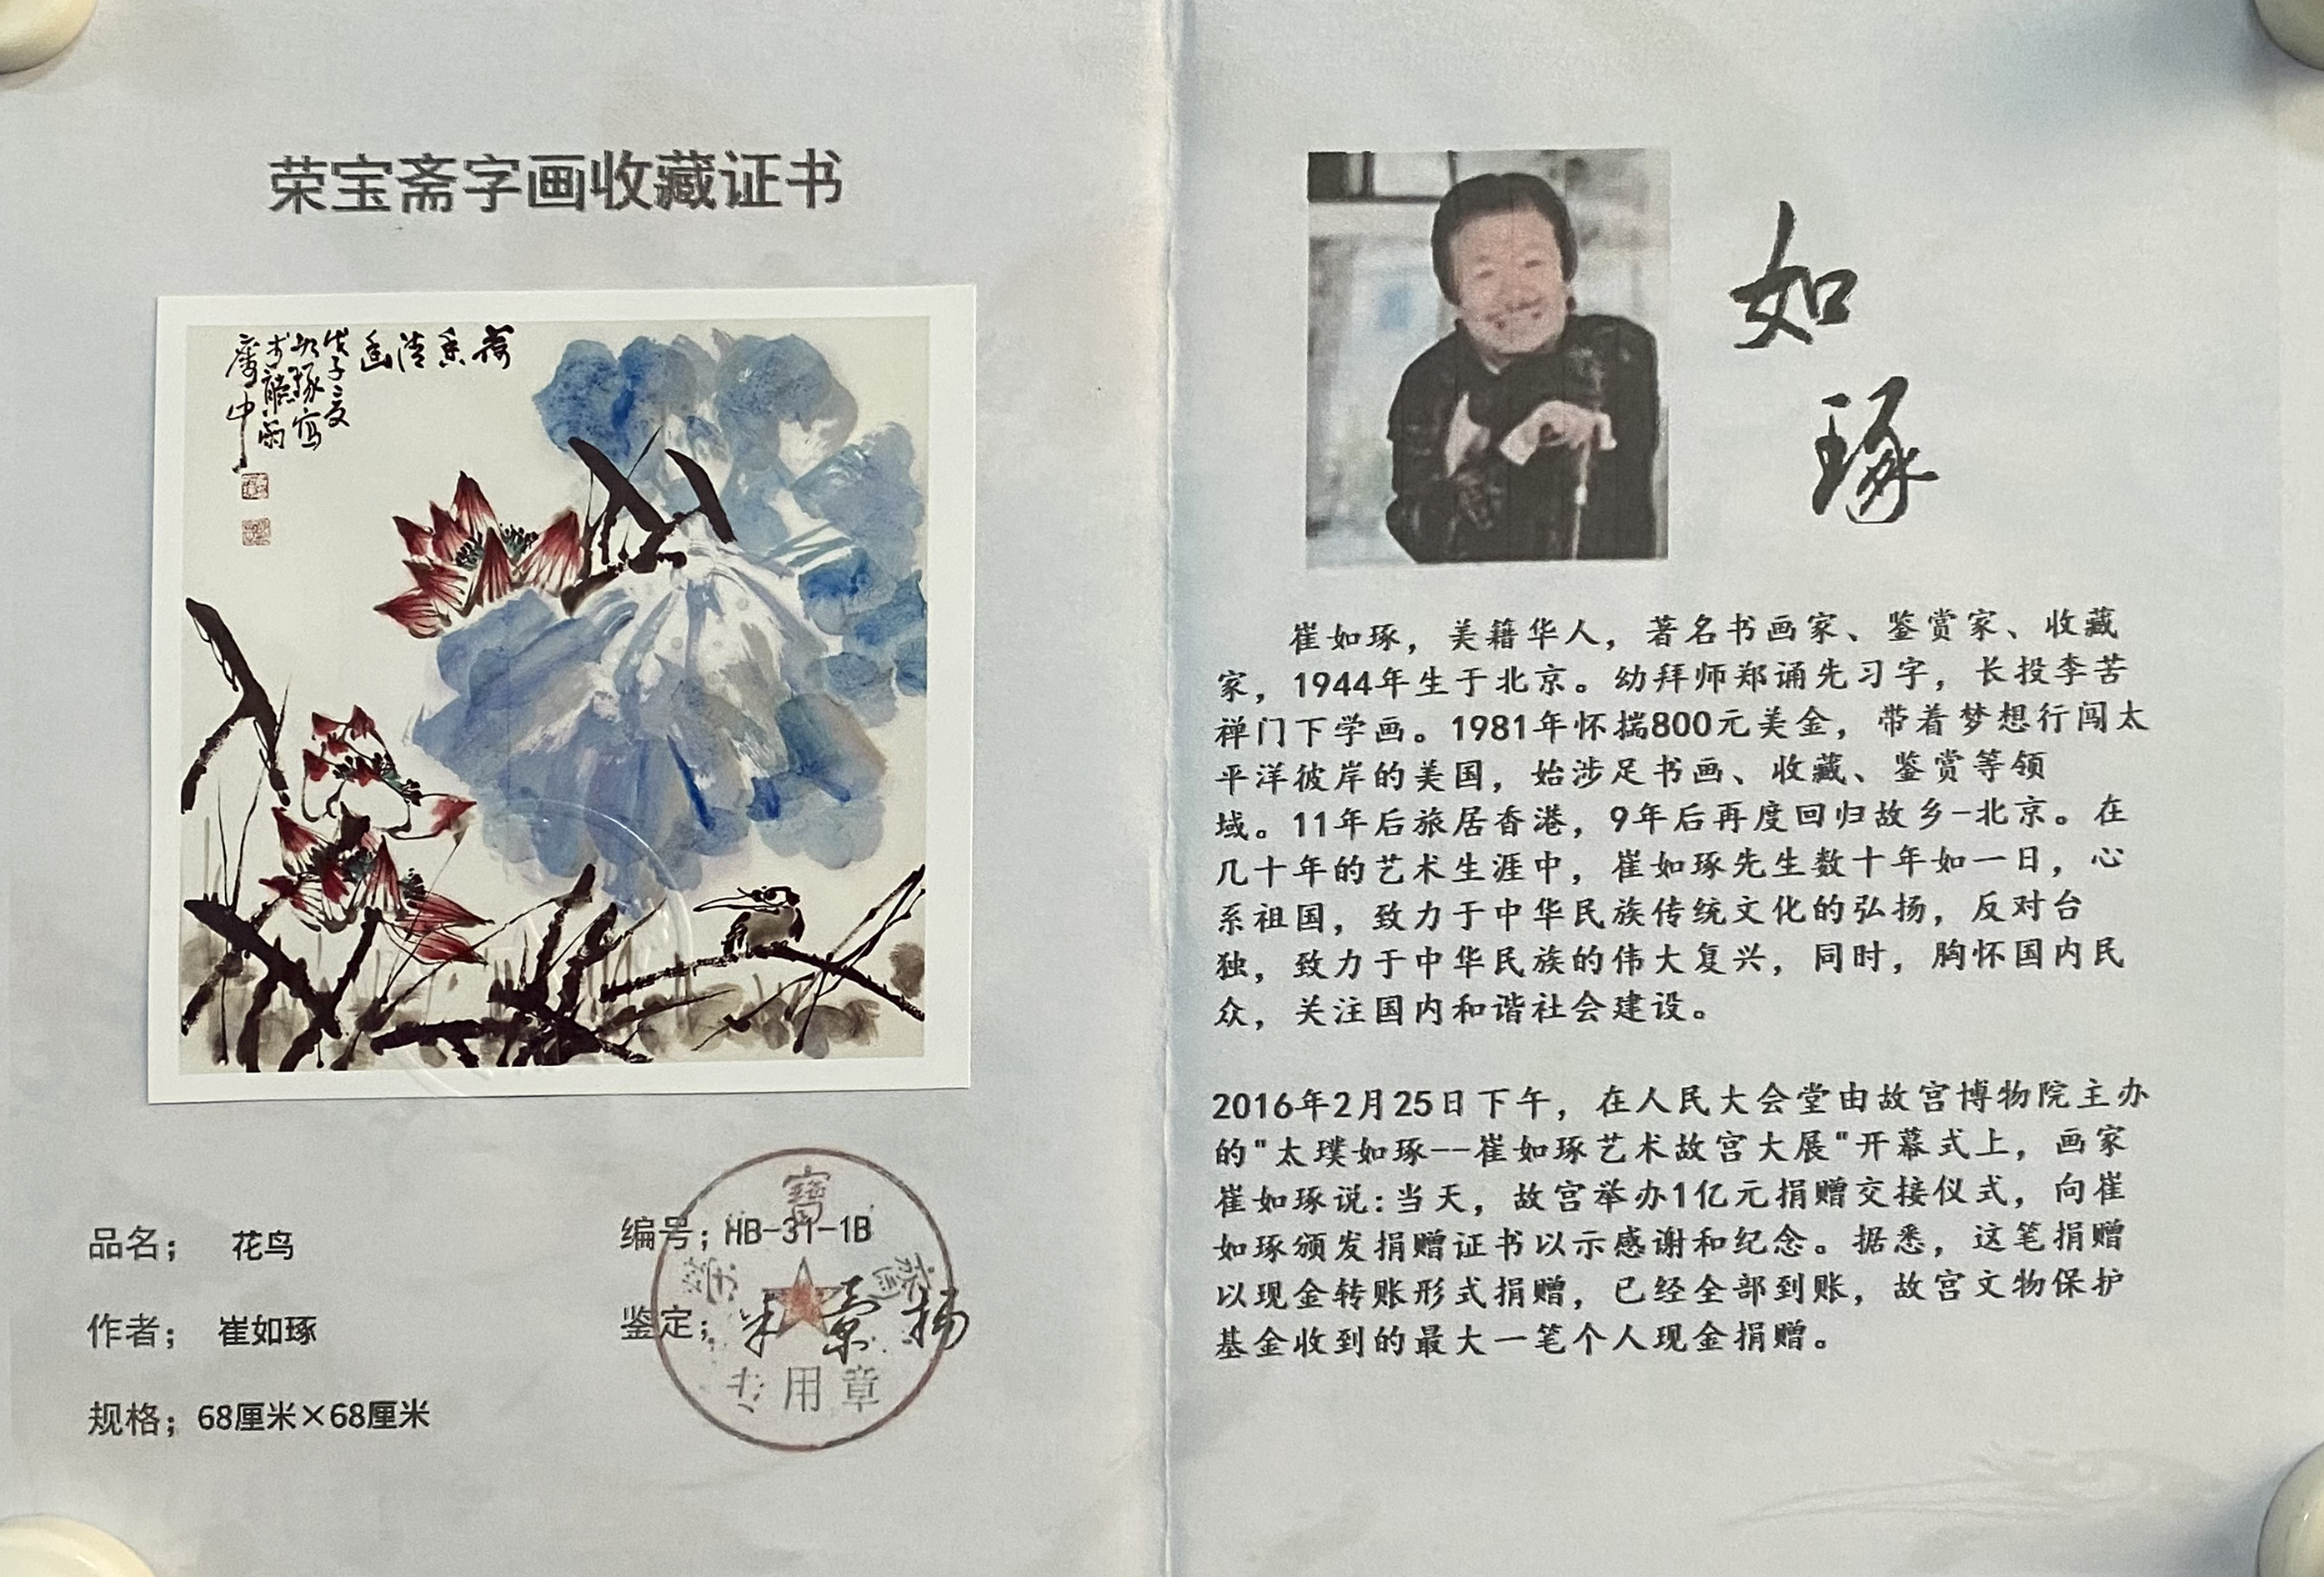 荣宝斋字画收藏证书
荷香清幽
戊子之夏
如琢写
于听雨
斋中
品名； 花鸟
作者； 崔如琢
规格；68厘米×68厘米
编号；HB-31-1B
鉴定；米景扬
榮寳齋
专用章
如
琢
崔如琢，美籍华人，著名书画家、鉴赏家、收藏
家，1944年生于北京。幼拜师郑诵先习字，长投李苦
禅门下学画。1981年怀揣800元美金，带着梦想行闯太
平洋彼岸的美国，始涉足书画、收藏、鉴赏等领
域。11年后旅居香港，9年后再度回归故乡-北京。在
几十年的艺术生涯中，崔如琢先生数十年如一日，心
系祖国，致力于中华民族传统文化的弘扬，反对台
独，致力于中华民族的伟大复兴，同时，胸怀国内民
众，关注国内和谐社会建设。
2016年2月25日下午，在人民大会堂由故宫博物院主办
的"太璞如琢--崔如琢艺术故宫大展"开幕式上，画家
崔如琢说:当天，故宫举办1亿元捐赠交接仪式，向崔
如琢颁发捐赠证书以示感谢和纪念。据悉，这笔捐赠
以现金转账形式捐赠，已经全部到账，故宫文物保护
基金收到的最大一笔个人现金捐赠。